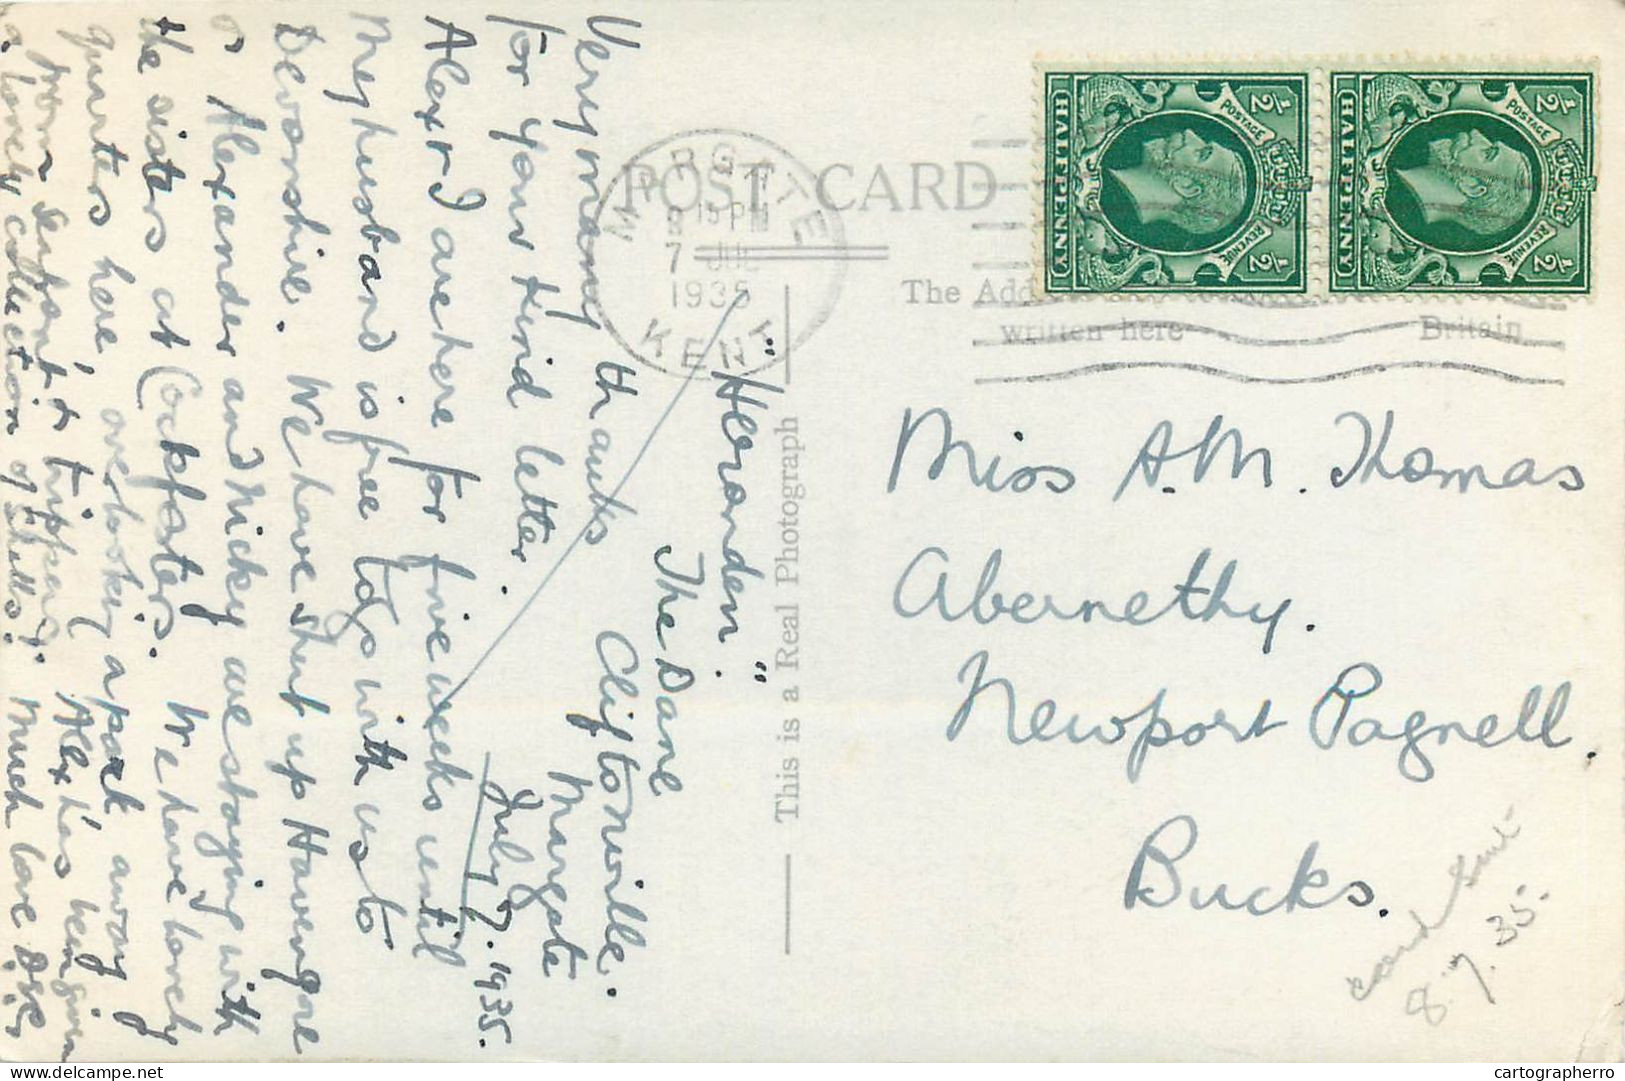 POST CARD
The Add
written here
Britain
This is a Real Photograph
MARGATE
15 PM
7 JUL
1935
KENT
POSTAGE
REVENUE
1/2
1/2
HALFPENNY
POSTAGE
REVENUE
1/2
1/2
HALFPENNY
"Heronden"
The Dane
Cliftonville.
Margate
July 7. 1935.
Very many thanks
for your kind letter.
Alex & I are here for five weeks until
my husband is free to go with us to
Devonshire. We have shut up Havengore
Alexander and Nicky are staying with
the sisters at Cockfosters. We have lovely
quarters here, overlooking a park away
from seafront & trippery. Alex has been given
a lovely collection of shells. Much love
Miss A. M. Thomas
Abernethy.
Newport Pagnell.
Bucks.
card sent
8.7.35.
cartographerro